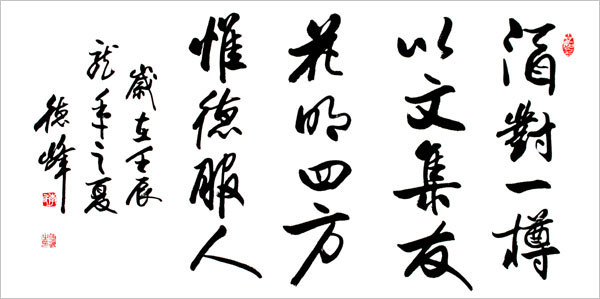 酒對一樽
以文集友
花明四方
惟德服人
歲在壬辰
龍年之夏
德峰